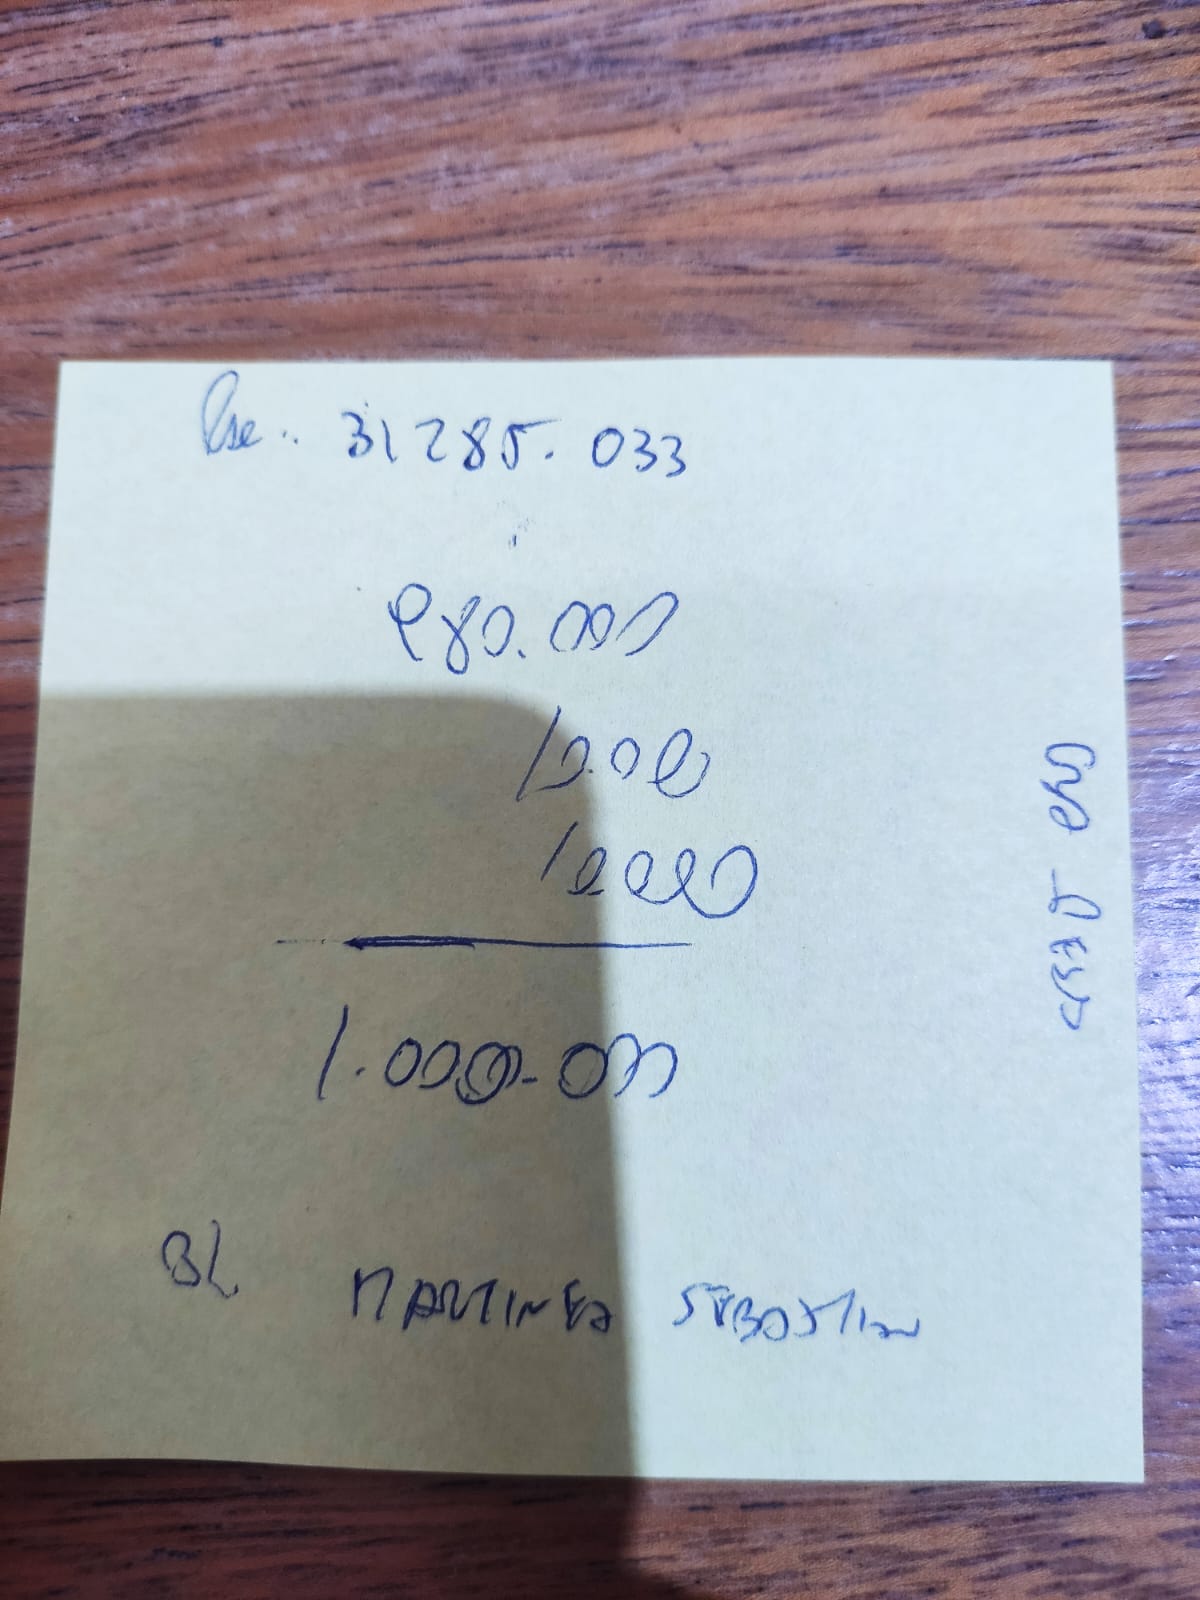 31285.033
980.000
10.000
10000
1.000.000
BL MARTINEZ SEBASTIAN